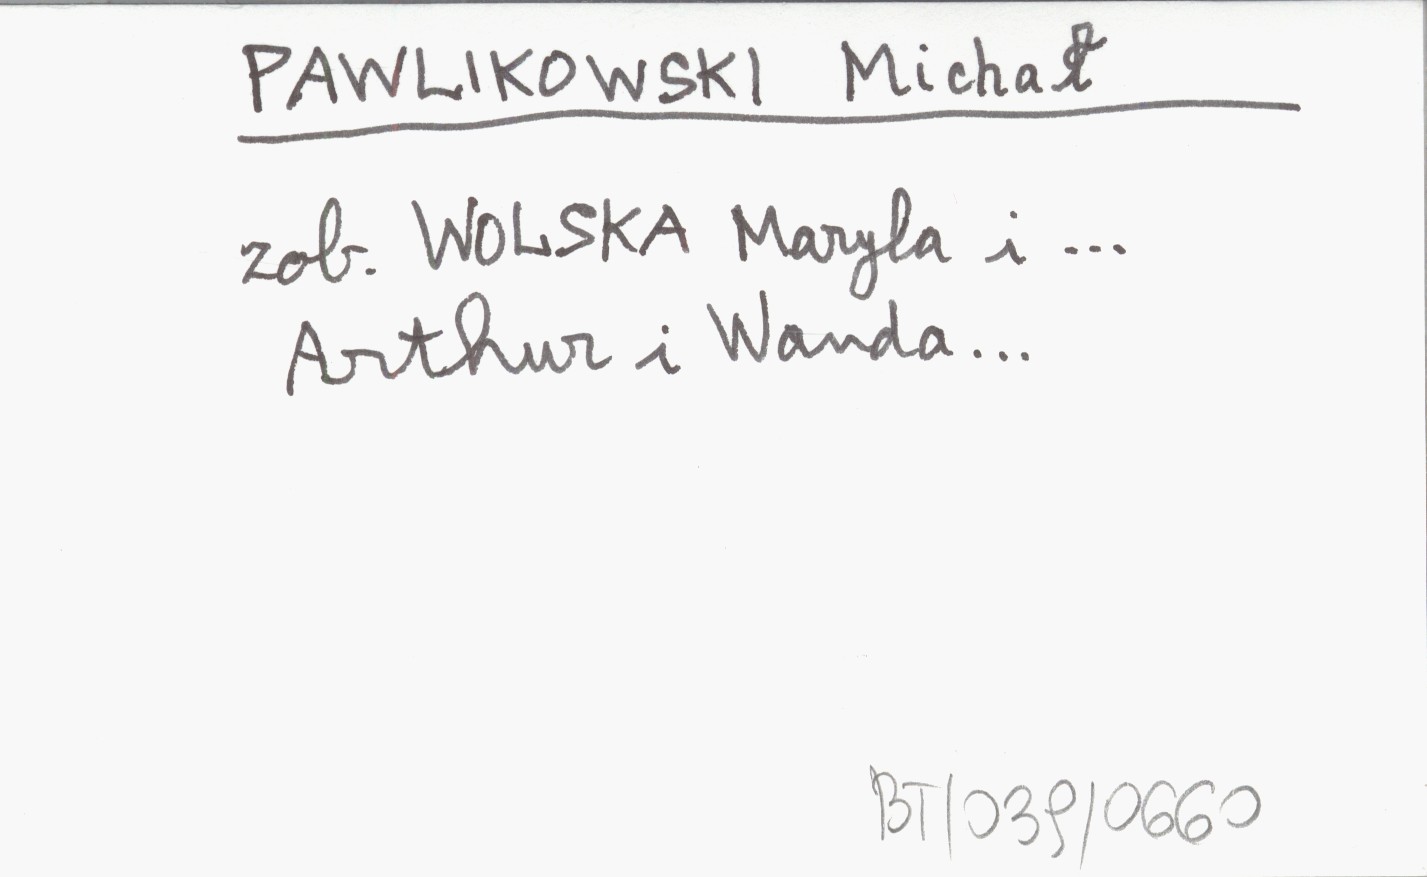 PAWLIKOWSKI Michał
zob. WOLSKA Maryla i ...
Arthur i Wanda...
BT/039/0660